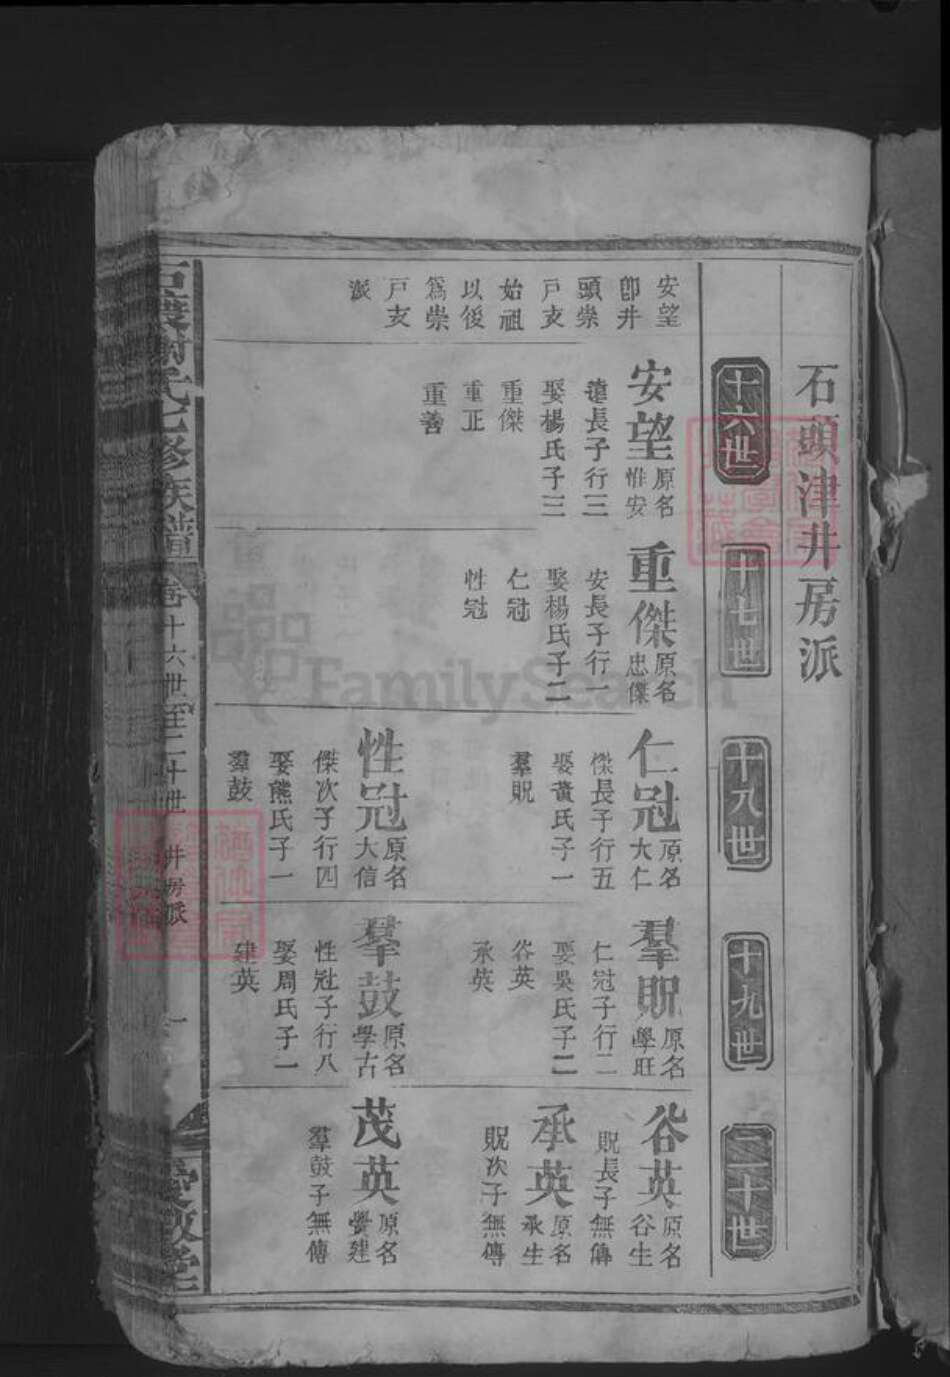 石頭津井房派
十六世
十七世
十八世
十九世
二十世
安望
卽井
頭崇
戸支
始祖
以後
爲崇
戸支
派
安望
原名
惟安
遠長子行三
娶楊氏子三
重傑
重正
重善
重傑
原名
忠傑
安長子行一
娶楊氏子二
仁冠
性冠
仁冠
原名
大仁
傑長子行五
娶黃氏子一
羣貺
性冠
原名
大信
傑次子行四
娶熊氏子一
羣鼓
羣貺
原名
學旺
仁冠子行二
娶吳氏子二
谷英
承英
羣鼓
原名
學古
性冠子行八
娶周氏子一
建英
谷英
原名
谷生
貺長子無傳
承英
原名
承生
貺次子無傳
茂英
原名
學建
羣鼓子無傳
氏七修族譜
卷
十六世至二十世
井房派
一
愛敬堂
FamilySearch